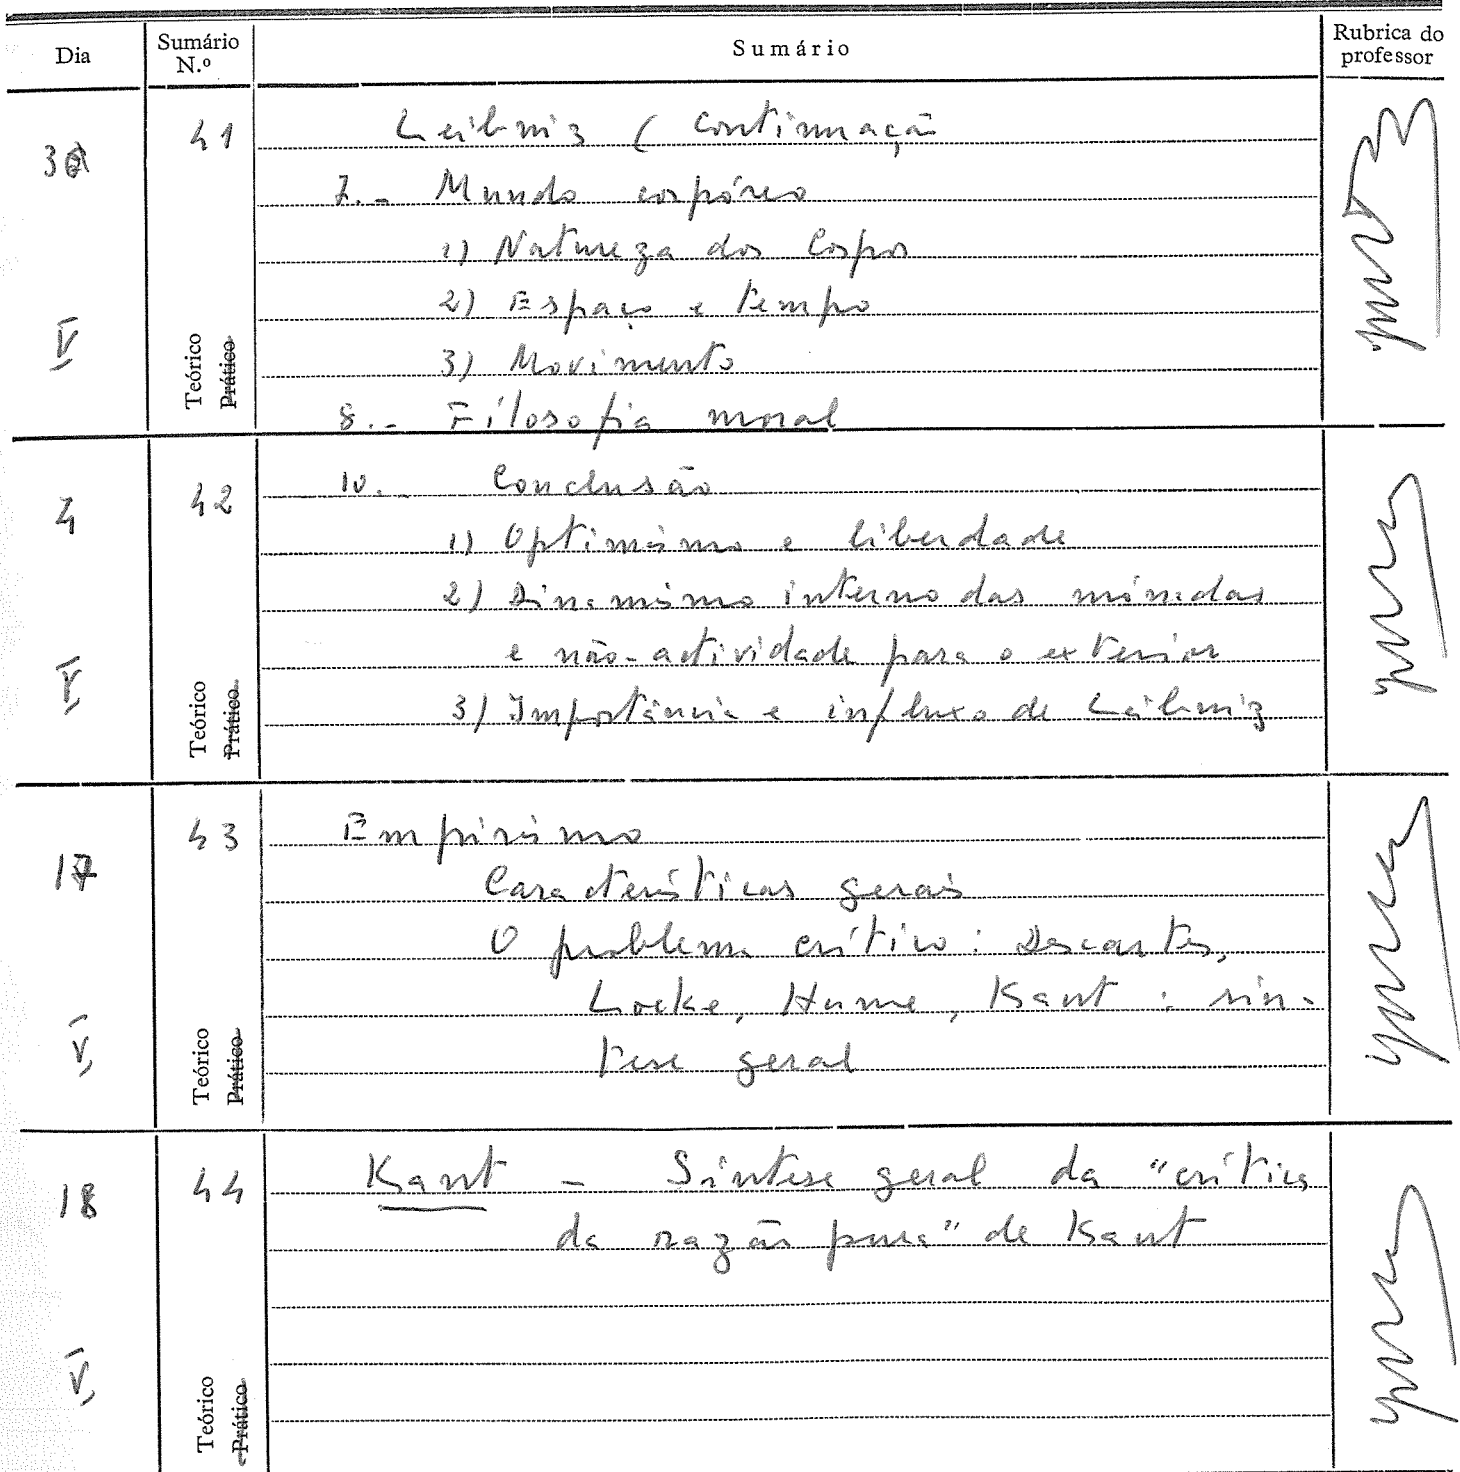 Dia
Sumário N.º
Sumário
Rubrica do professor
3
V
41
Teórico
Prático
Leibniz (continuação
7.- Mundo corpóreo
1) Natureza dos Corpos
2) Espaço e tempo
3) Movimento
8.- Filosofia moral
4
V
42
Teórico
Prático
10.- Conclusão
1) Optimismo e liberdade
2) Dinamismo interno das mónadas
e não-actividade para o exterior
3) Importância e influxo de Leibniz
17
V
43
Teórico
Prático
Empirismo
Características gerais
O problema crítico: Descartes,
Locke, Hume, Kant: sín-
tese geral
18
V
44
Teórico
Prático
Kant - Síntese geral da "crítica
da razão pura" de Kant